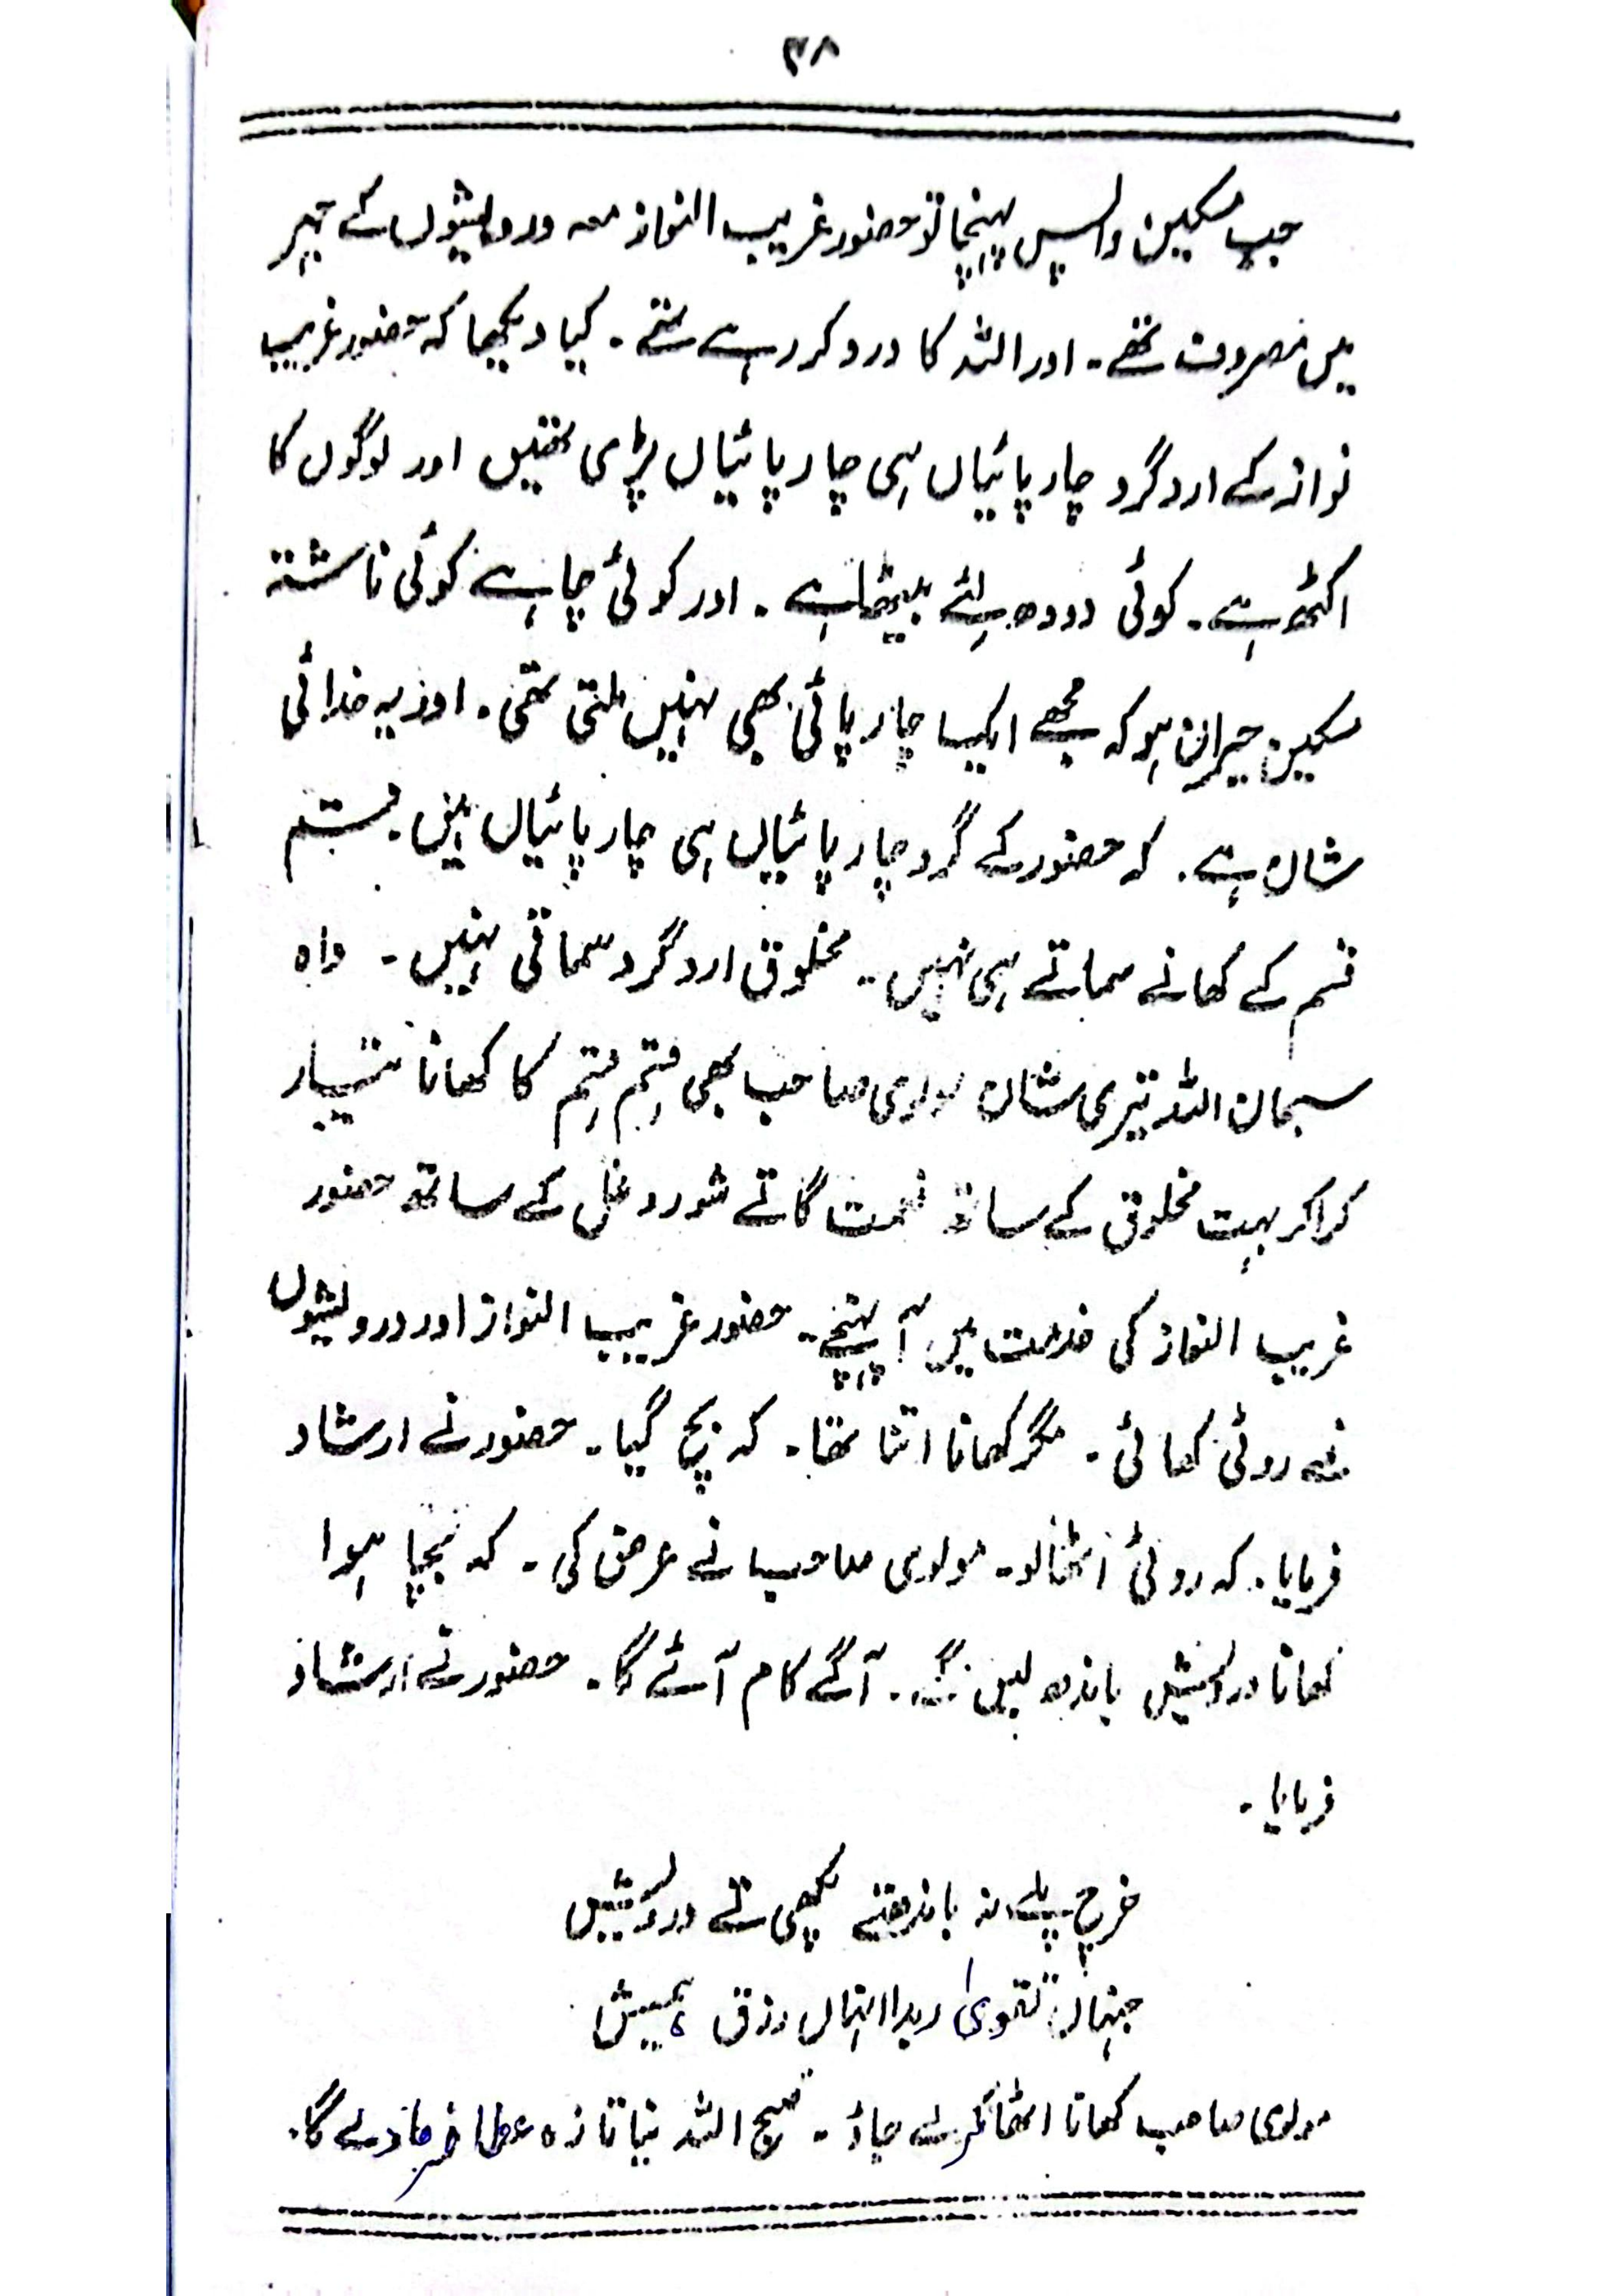 ۳۸
جب مسکین واپس پہنچا تو حضور غریب النواز معہ درویشوں کے جہر
میں مصروف تھے۔ اور اللہ کا ورد کر رہے تھے۔ کیا دیکھا کہ حضور غریب
نواز کے ارد گرد چارپائیاں ہی چارپائیاں پڑی تھیں اور لوگوں کا
اکٹھ ہے۔ کوئی دودھ لئے بیٹھا ہے۔ اور کوئی چاہے کوئی ناشتہ
مسکین حیران ہو کہ مجھے ایک چارپائی بھی نہیں ملتی تھی۔ اور یہ خدائی
شان ہے۔ کہ حضور کے گرد چارپائیاں ہی چارپائیاں ہیں۔ قسم
قسم کے کھانے سماتے ہی نہیں۔ مخلوق ارد گرد سماتی نہیں۔ واہ
سبحان اللہ تیری شان مولوی صاحب بھی قسم قسم کا کھانا تیار
کرا کر بہت مخلوق کے ساتھ نعت گاتے شور و غل کے ساتھ حضور
غریب النواز کی خدمت میں آ پہنچے۔ حضور غریب النواز اور درویشوں
نے روٹی کھائی۔ مگر کھانا اتنا تھا۔ کہ بچ گیا۔ حضور نے ارشاد
فرمایا۔ کہ روٹی اٹھا لو۔ مولوی صاحب نے عرض کی۔ کہ بچا ہوا
کھانا درویش باندھ لیں گے۔ آگے کام آئے گا۔ حضور نے ارشاد
فرمایا۔
خرچ پلے نہ باندھتے پکھی تے درویش
جنہاں تقویٰ ربدا انہاں رزق ہمیش
مولوی صاحب کھانا اٹھا کر لے جاؤ۔ صبح اللہ نیا تازہ عطا فرما دے گا۔